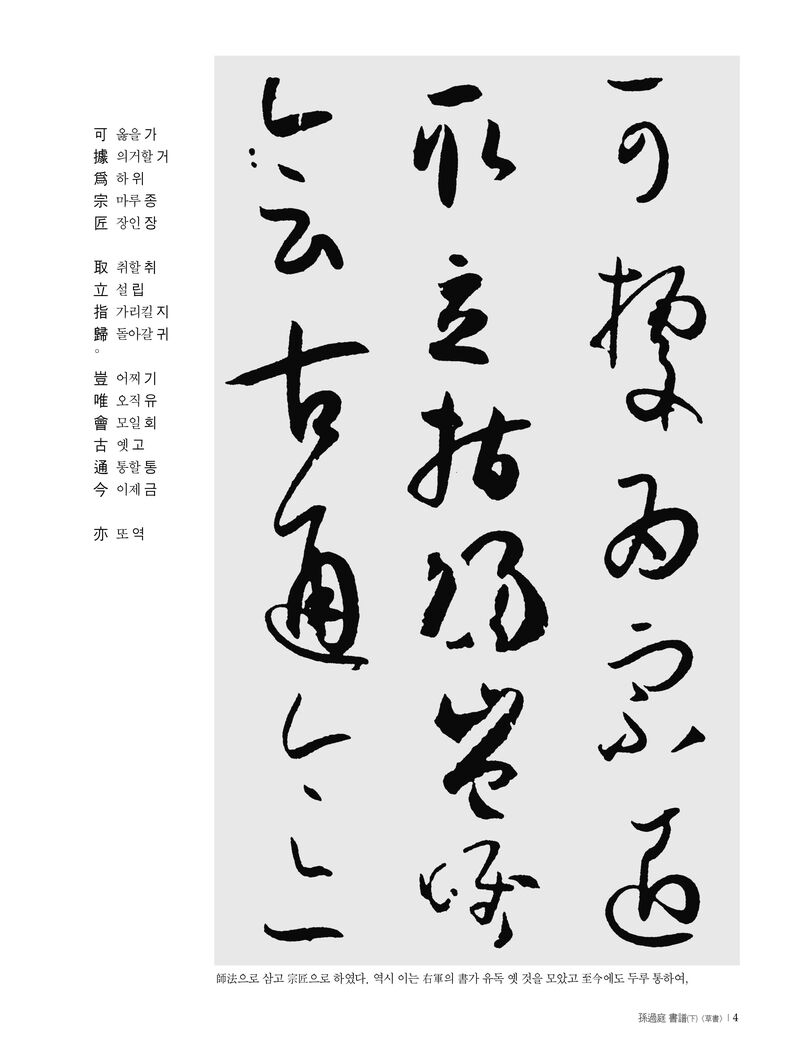 可 옳을 가
據 의거할 거
爲 하 위
宗 마루 종
匠 장인 장
取 취할 취
立 설 립
指 가리킬 지
歸 돌아갈 귀
。
豈 어찌 기
唯 오직 유
會 모일 회
古 옛 고
通 통할 통
今 이제 금
亦 또 역
可據爲宗匠
取立指歸豈唯
會古通今亦
師法으로 삼고 宗匠으로 하였다. 역시 이는 右軍의 書가 유독 옛 것을 모았고 至今에도 두루 통하여,
孫過庭 書譜(下)〈草書〉 | 4